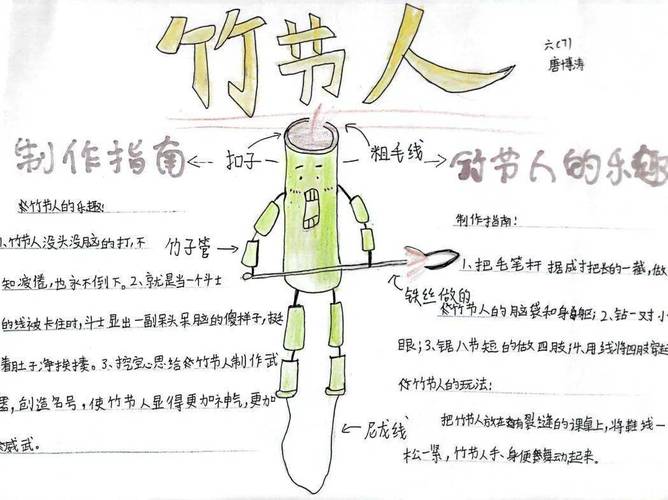 竹节人
六(7)
唐博涛
制作指南
扣子
粗毛线
竹节人的乐趣
竹节人的乐趣:
1、竹节人没头没脑的打,不
知疲倦,也永不倒下。2、就是当一个斗士
的线被卡住时,斗士显出一副呆头呆脑的傻样子,挺
着肚子净挨揍。3、挖空心思给竹节人制作武
器,创造名号,使竹节人显得更加神气,更加
威武。
竹子管
铁丝做的
尼龙线
制作指南:
1、把毛笔杆锯成寸把长的一截,做
竹节人的脑袋和身躯;2、钻一对小
眼;3、锯八节短的做四肢;4、用线将四肢穿起
竹节人的玩法:
把竹节人放在有裂缝的课桌上,将鞋线一
松一紧,竹节人手、身便舞动起来。